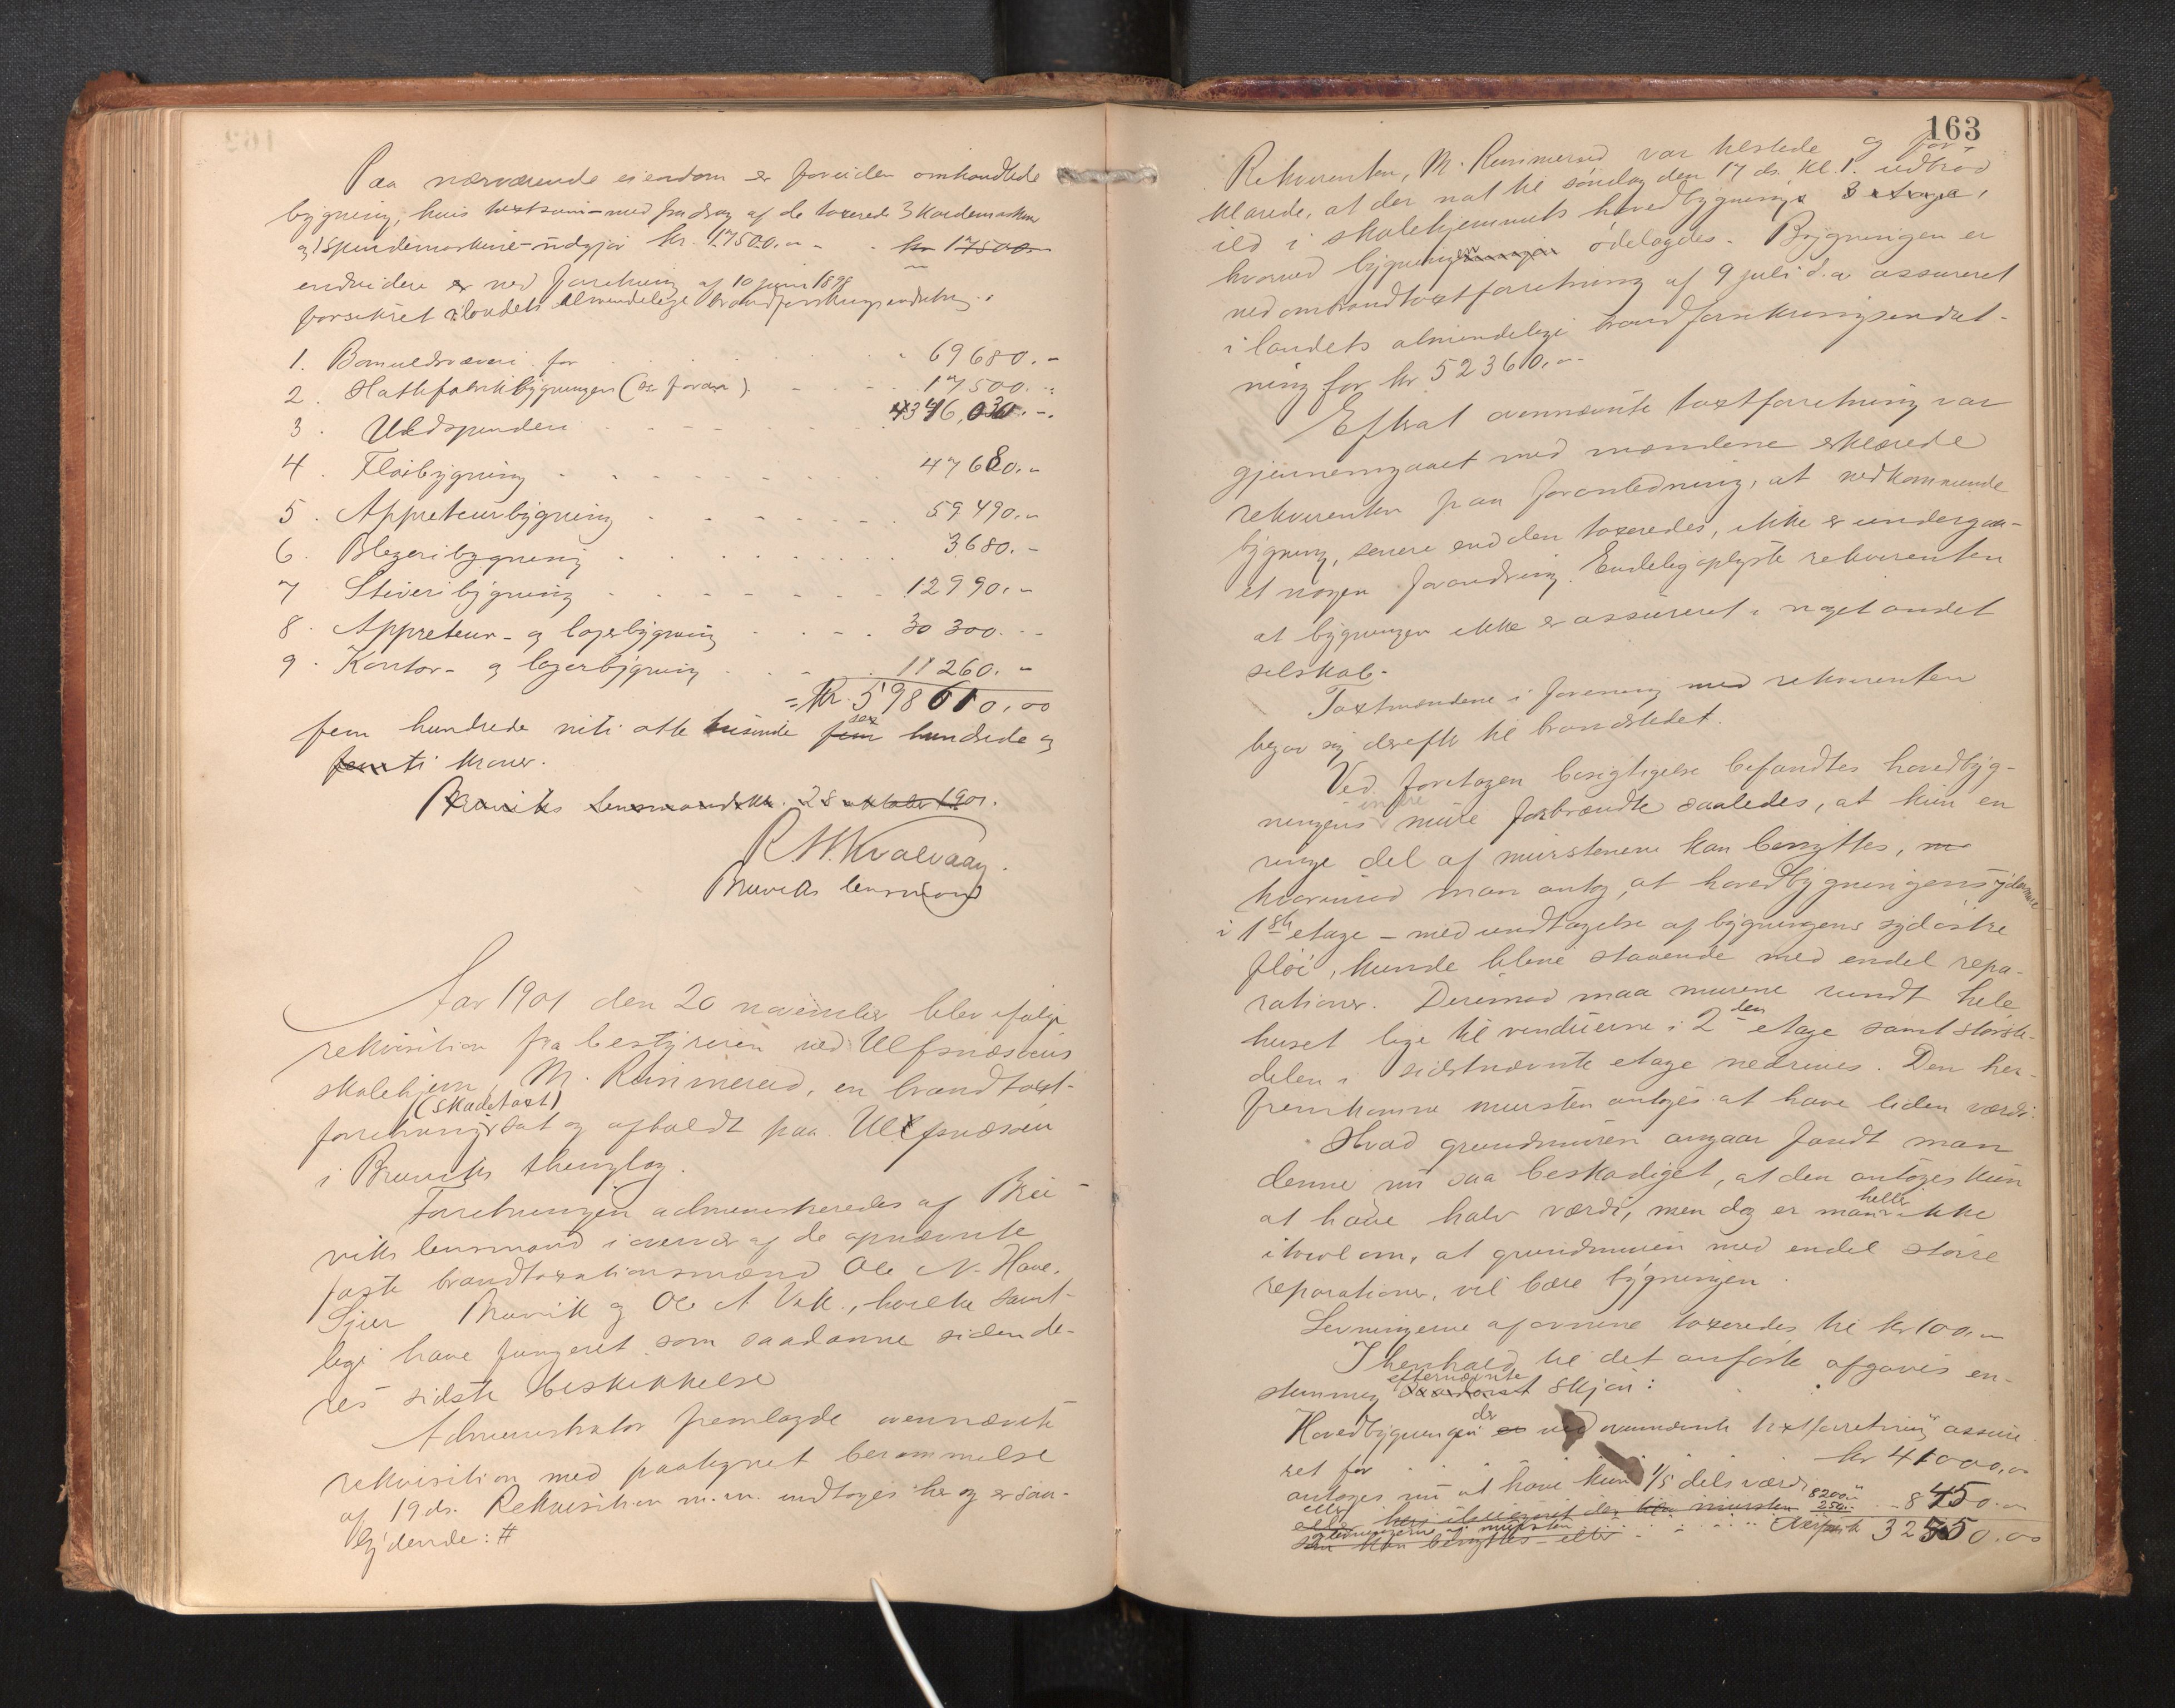 Paa nærværende eiendom er foruden omhandlede
bygning, hvis taxtsum – med fradrag af de taxerede 3 kardemaskiner
og 1 spindemaskine – udgjør kr. 17500.-
endvidere ved forretning af 10 juni 1898
forsikret i landets almindelige brandforsikringsindretning:
1. Bomuldsvæveri for 69680.-
2. Hattefabrikbygningen (se foran) 17500.-
3. Uldspinderi
4. Fløibygning 47680.-
5. Appreturbygning 59490.-
6. Blegeribygning 3680.-
7. Stiveribygning 12990.-
8. Appretur- og lagerbygning 30300.-
9. Kontor- og lagerbygning 11260.-
= Kr. 598610,00
fem hundrede niti otte tusinde sex hundrede og
ti kroner.
Bruviks lensmandsktr. 28 oktober 1901.
R. H. Kvalvaag.
Bruviks lensmand
Aar 1901 den 20 november blev ifølge
rekvisition fra bestyreren ved Ulfsnæsøens
skolehjem, M. Runnereid, en brandtaxt-
(skadetaxt)
forretning sat og afholdt paa Ulfsnæsøen
i Bruviks thinglag.
Forretningen administreredes af Bru-
viks lensmand i overvær af de opnævnte
faste brandtaxationsmænd Ole N. Haue,
Sjur Bruvik og Ole A Vik, hvilke samt-
lige have fungeret som saadanne siden de-
res sidste beskikkelse
Administrator fremlagde ovennævnte
rekvisition med paategnet berammelse
af 19 ds. Rekvisition m.m. indtages her og er saa-
lydende: #
163
Rekvirenten, M. Runnereid var tilstede og for-
klarede, at der nat til søndag den 17 ds. kl. 1. udbrød
ild i skolehjemmets hovedbygnings 3 etage,
hvorved bygningen ødelagdes. Bygningen er
ved ombrandtaxtforretning af 9 juli d.a. assureret
i landets almindelige brandforsikringsindret-
ning for kr 52360,-
Efterat ovennævnte taxtforretning var
gjennemgaaet med mændene erklærede
rekvirenten paa foranledning, at vedkommende
bygning, senere end den taxeredes, ikke er undergaa-
et nogen forandring. Endelig oplyste rekvirenten
at bygningen ikke er assureret i noget andet
selskab.
Taxtmændene i forening med rekvirenten
begav sig derefter til brandstedet.
Ved foretagen besigtigelse befandtes hovedbyg-
ningens indre mure forbrændte saaledes, at kun en
ringe del af murstenene kan benyttes,
hvorimod man antog, at hovedbygningens ydermure
i 1ste etage – med undtagelse af bygningens sydøstre
fløi, kunde blive staaende med endel repa-
rationer. Derimod maa murene rundt hele
huset lige til vinduerne i 2den etage samt største-
delen i sidstnævnte etage nedrives. Den her-
fremkomne mursten antoges at have liden værdi.
Hvad grundmuren angaar fandt man
denne nu saa beskadiget, at den antoges kun
at have halv værdi, men dog er man heller ikke
i tvivl om, at grundmuren med endel større
reparationer, vil bære bygningen.
Levningerne af ovnene taxeredes til kr 100.-
I henhold til det anførte afgaves en-
stemmig efternævnte skjøn:
Hovedbygningen der ved ovennævnte taxtforretning assure-
ret for kr 41000,00
antoges nu at have kun 1/5 dels værdi 8200.- 8450.-
eller
levningerne af mursten 250.-
32550.00